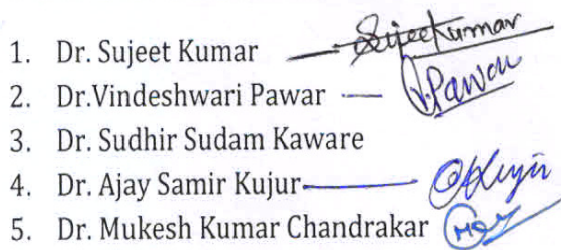 1. Dr. Sujeet Kumar — Sujeetkumar
2. Dr.Vindeshwari Pawar — V.Pawar
3. Dr. Sudhir Sudam Kaware
4. Dr. Ajay Samir Kujur
5. Dr. Mukesh Kumar Chandrakar